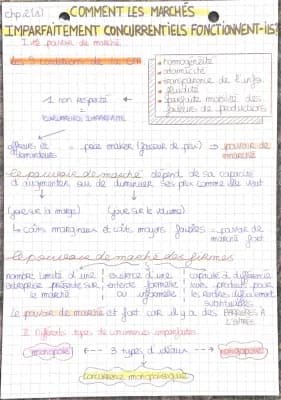 chp 2 (1)
COMMENT LES MARCHÉS
IMPARFAITEMENT CONCURRENTIELS FONCTIONNENT-ILS?
I. le pouvoir de marché
les 5 conditions de la CPP
• homogénéité
• atomicité
• transparence de l'info
• fluidité
• parfaite mobilité des
facteurs de productions
1 non respecté
=
CONCURRENCE IMPARFAITE
offreurs et demandeurs = price maker (faiseur de prix) ⇒ pouvoir de marché
le pouvoir de marché dépend de sa capacité
d'augmenter ou de diminuer ses prix comme elle veut
(joue sur la marge) (joue sur le volume)
↳ coûts marginaux et coûts moyens faibles = pouvoir de marché fort
le pouvoir de marché des firmes
nombre limité d'une entreprise présente sur le marché
existence d'une entente formelle ou informelle
capacité à différencier leurs produits pour les rendre difficilement substituables
le pouvoir de marché est fort car il y a des BARRIÈRES À L'ENTRÉE
II. Différents types de concurrences imparfaites
monopole <--- 3 types d'idéaux ---> oligopole
concurrence monopolistique